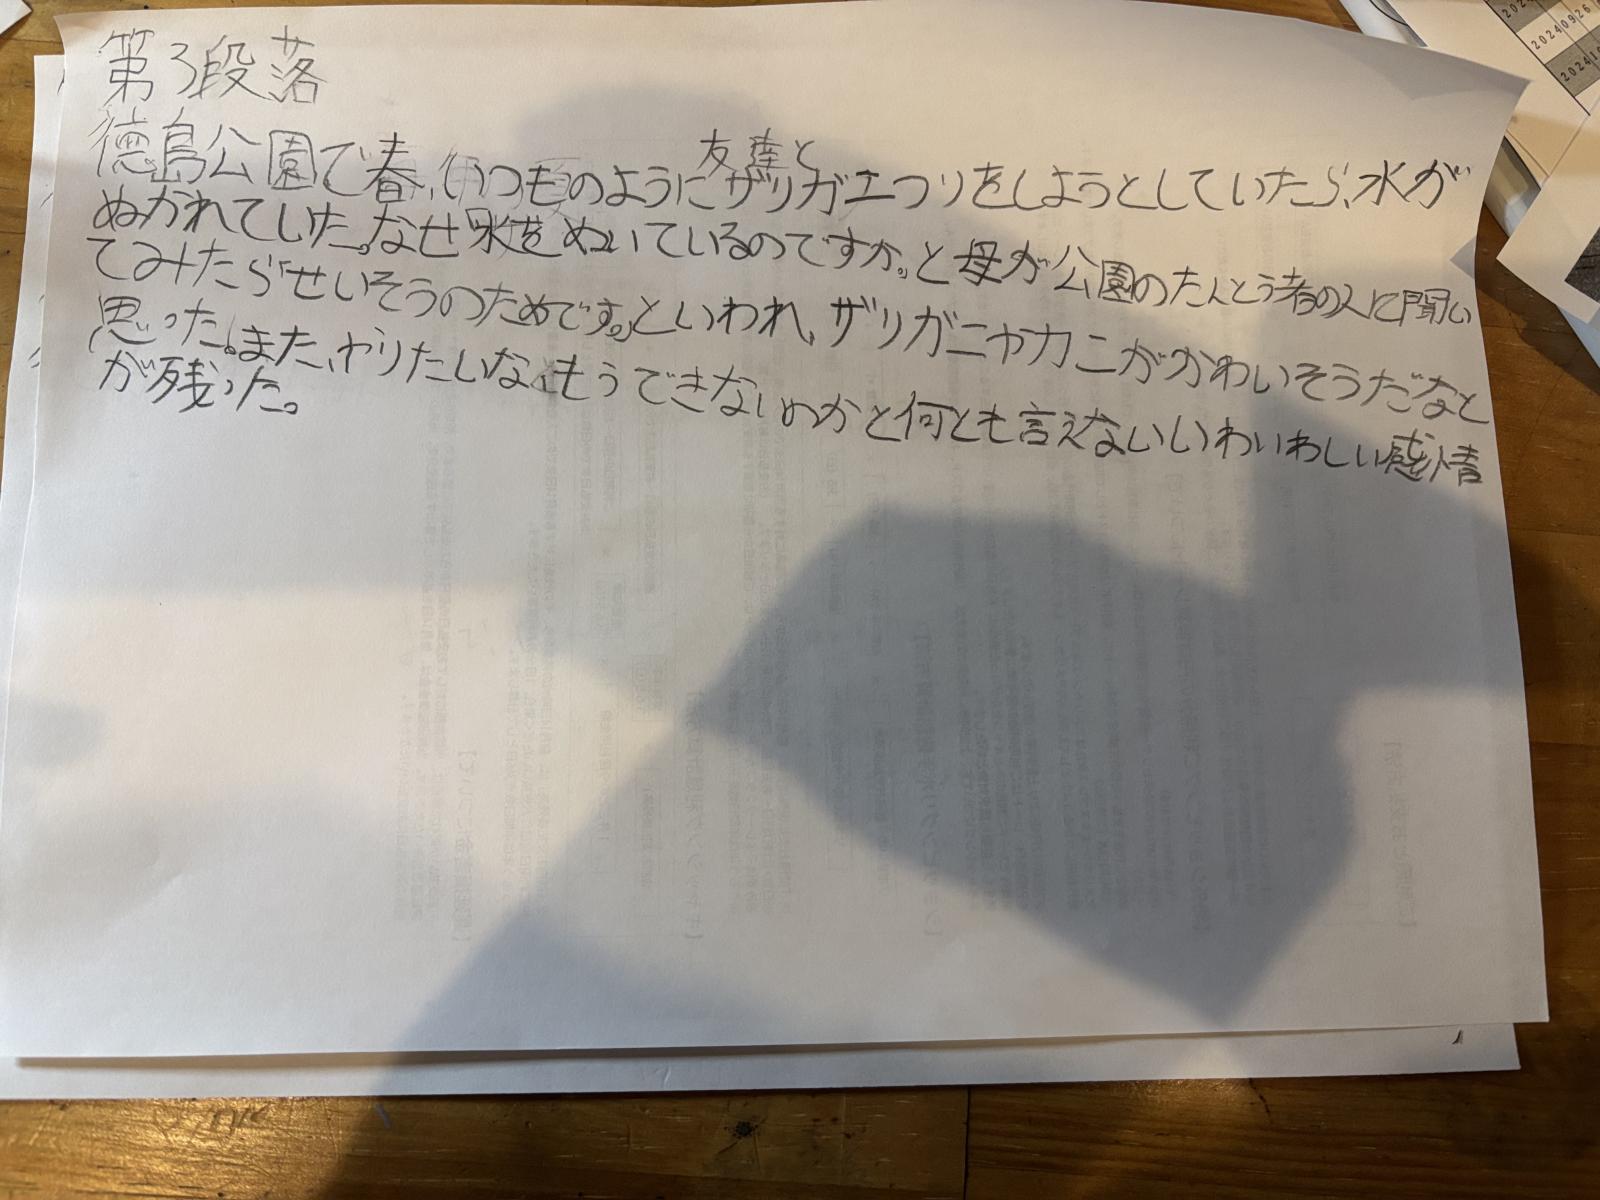 第3段落
友達と
徳島公園で春、いつものようにザリガニつりをしようとしていたら、水が
ぬかれていた。なぜ水をぬいているのですか。と母が公園のたんとう者の人に聞い
てみたら「せいそうのためです。」といわれ、ザリガニやカニがかわいそうだなと
思った。また、やりたいな、もうできないのかと何とも言えないいわいわしい感情
が残った。
2024 09 26